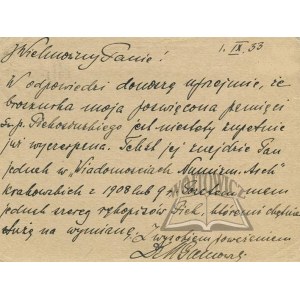 Wielmożny Panie!
1. IX. 33
W odpowiedzi donoszę uprzejmie, że
broszurka moja poświęcona pamięci
ś. p. Piekosińskiego jest niestety zupełnie
już wyczerpana. Tekst jej znajdzie Pan
jednak w "Wiadomościach Numizm. Arch."
krakowskich z 1908 lub 9 r.
jednak szereg rękopisów Piek., któremi chętnie
służę na wymianę.
Z wysokiem poważaniem